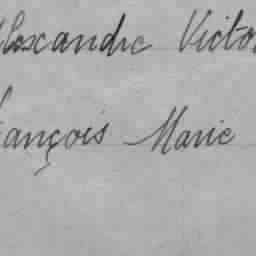 Alexandre Victo
François Marie